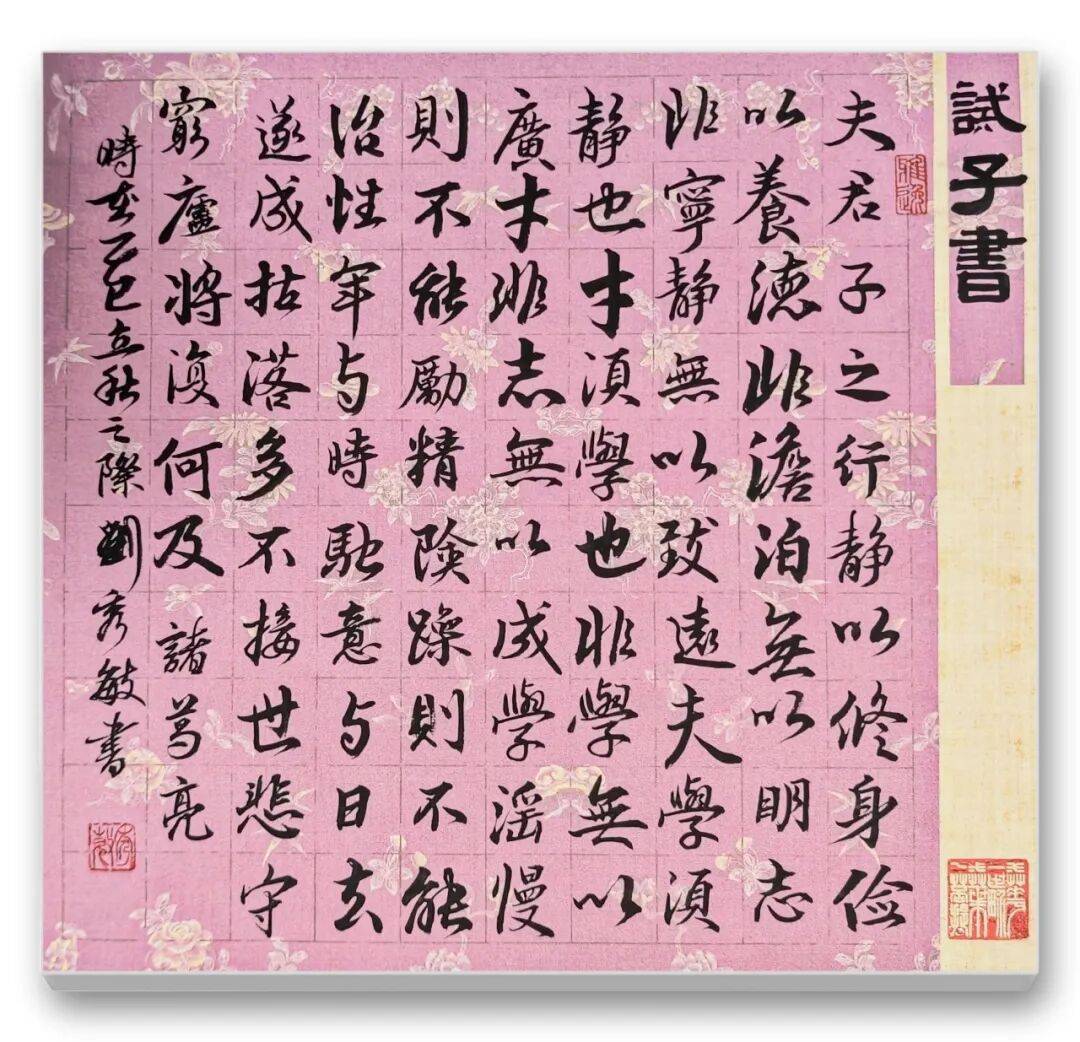 試子書
雅逸
夫君子之行静以修身俭
以養德非澹泊無以明志
非寧静無以致遠夫學須
静也才須學也非學無以
廣才非志無以成學滛慢
則不能勵精險躁則不能
治性年与時馳意与日去
遂成枯落多不接世悲守
窮廬將復何及諸葛亮
時在乙巳立秋之際劉秀敏書
秀敏